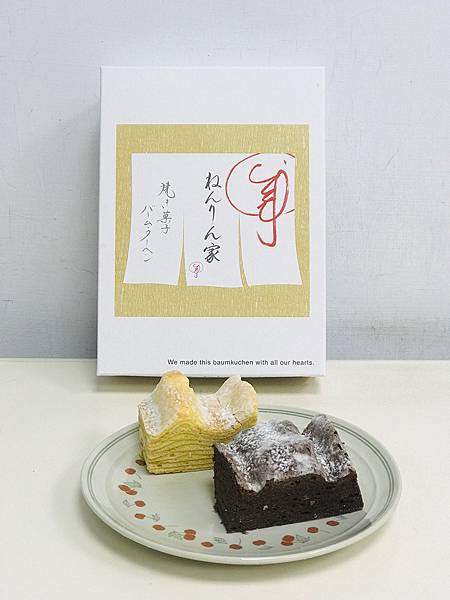 ねんりん家
焼き菓子
バームクーヘン
We made this baumkuchen with all our hearts.